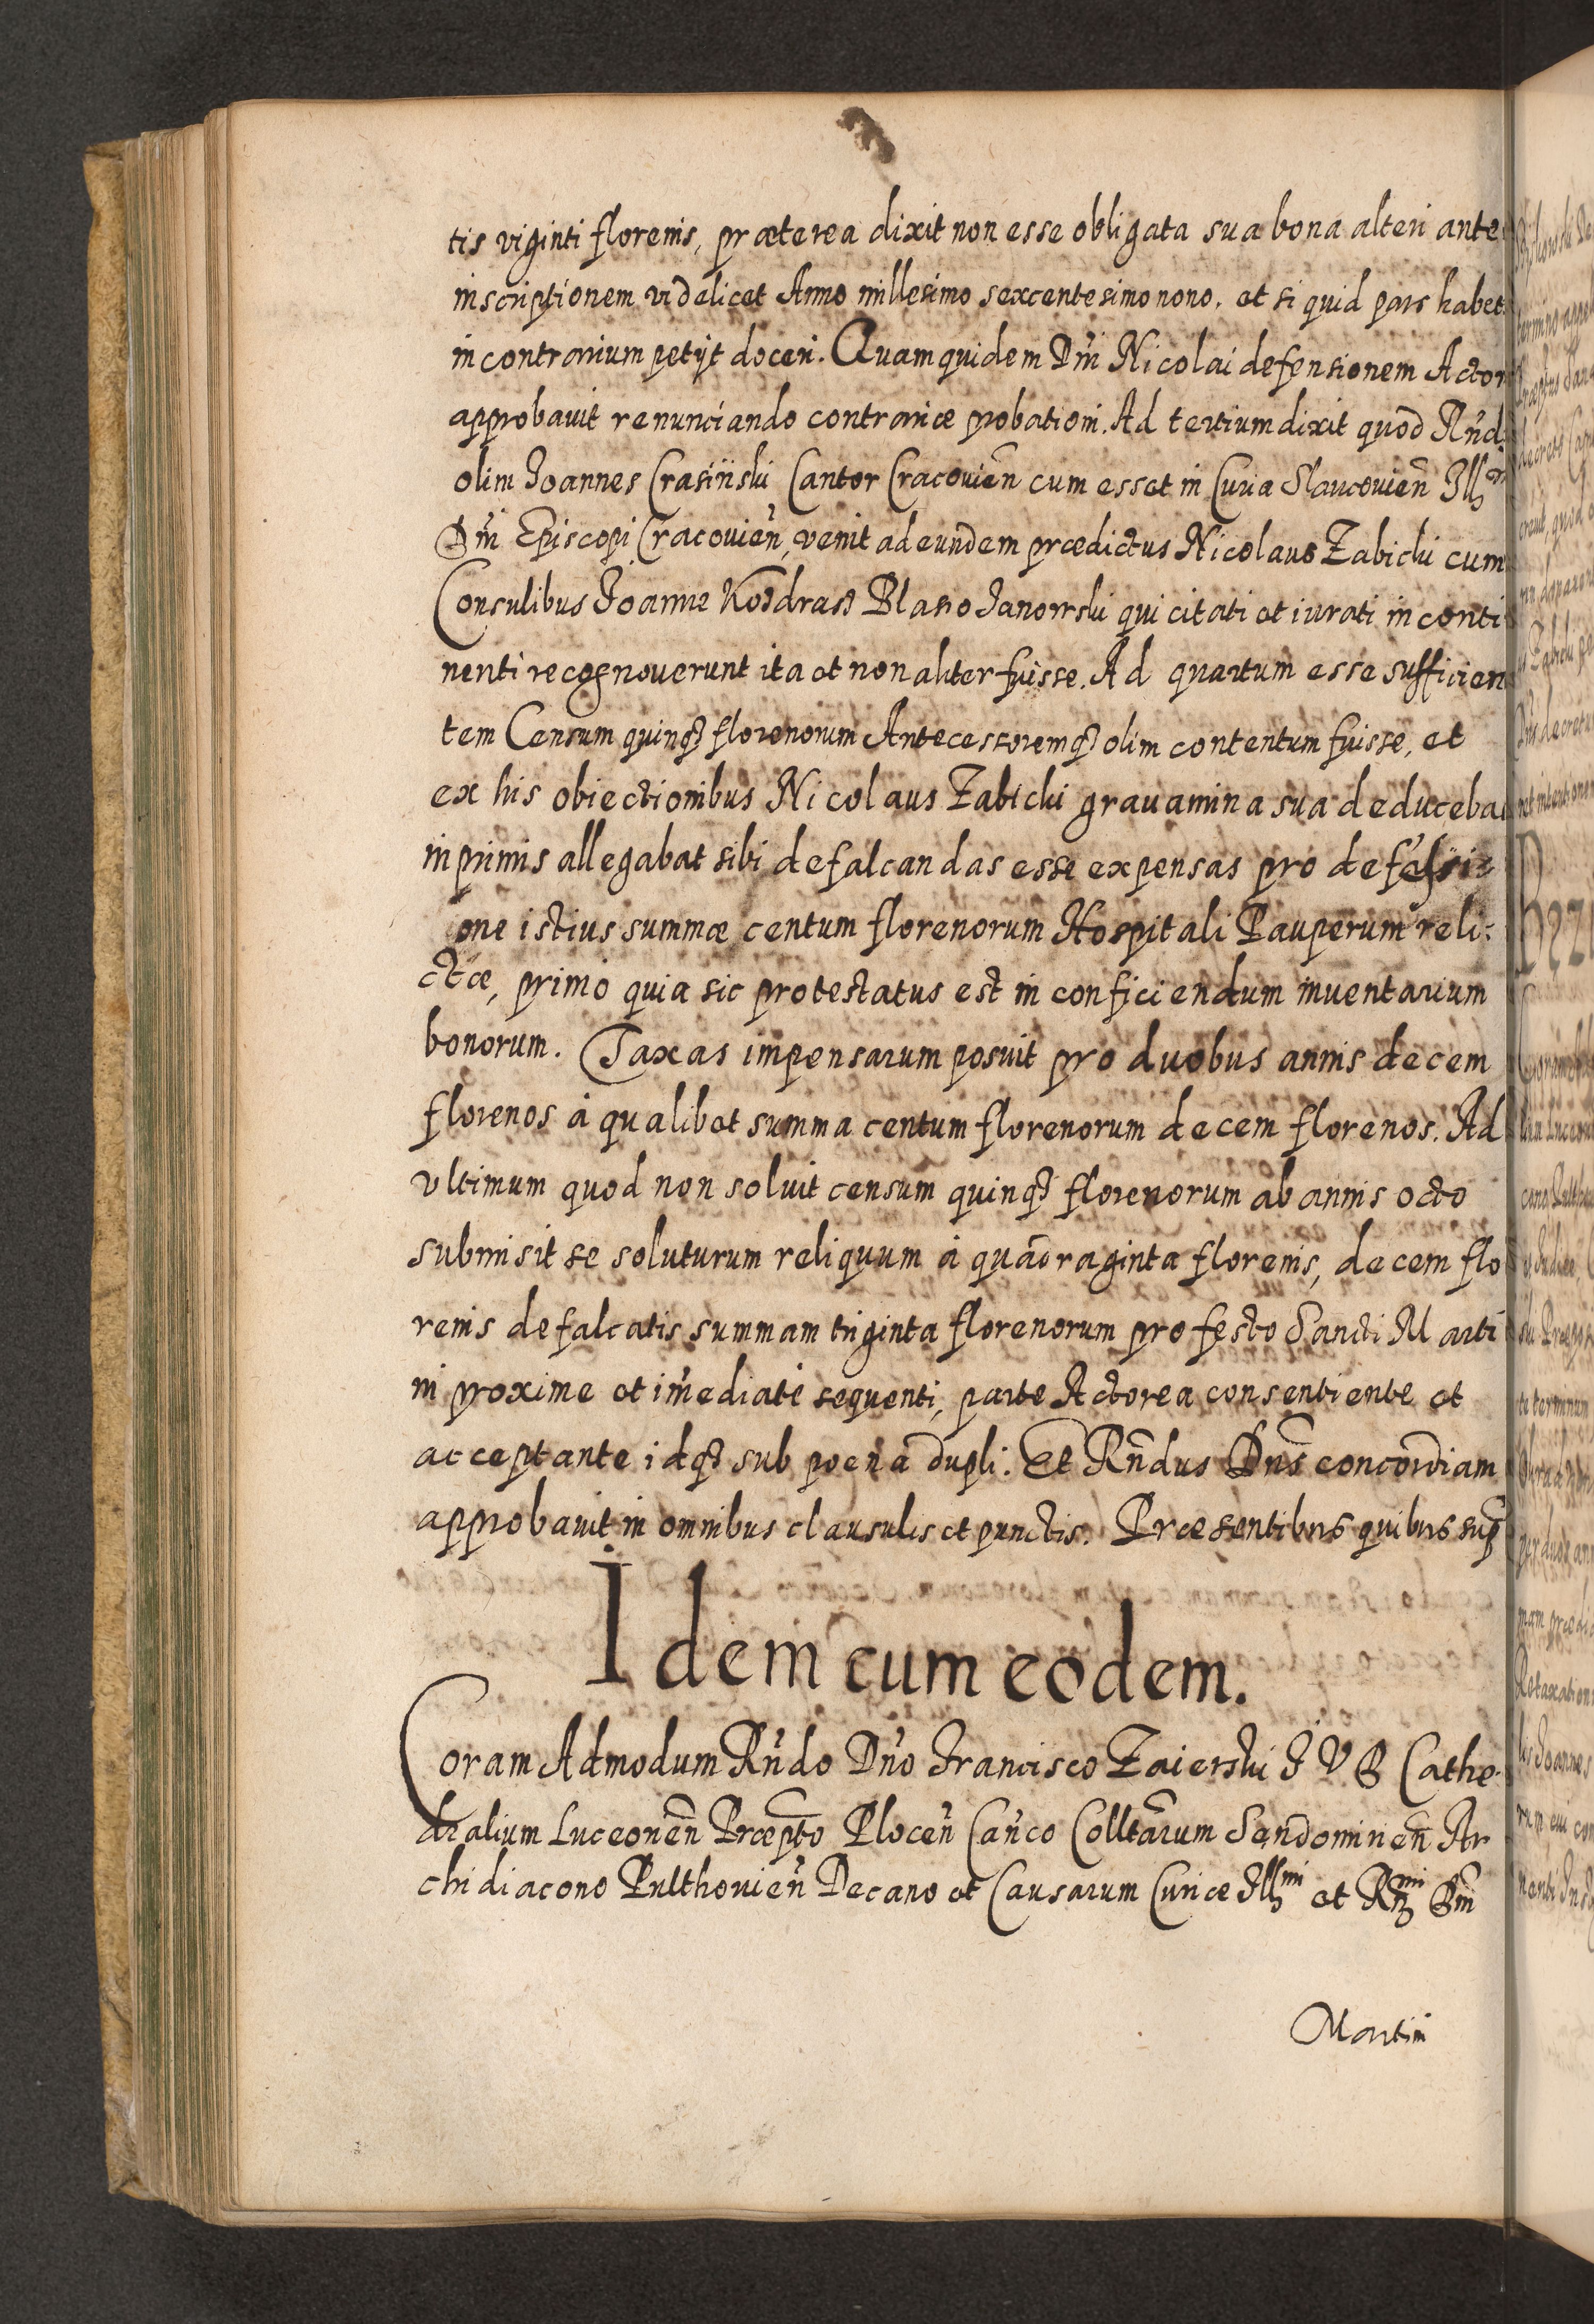 tis viginti florenis, præterea dixit non esse obligata sua bona alteri ante
inscriptionem videlicet Anno millesimo sexcentesimo nono, et si quid pars habet
in contrarium petijt doceri. Quam quidem Dm̃i Nicolai defensionem Actor
approbavit renunciando contrariæ probationi. Ad tertium dixit quod Rñd
olim Joannes Crasiński Cantor Cracovieñ cum esset in Curia Slavcovieñ Ill
Dm̃i Episcopi Cracovieñ, venit ad eundem prædictus Nicolaus Zabicki cum
Consulibus Joanne Blasio Janowski qui citati et iurati in conti
nenti recognoverunt ita et non aliter fuisse. Ad quartum esse sufficien
tem Censum quinqꝫ florenorum Antecessoremqꝫ olim contentum fuisse, et
ex his obiectionibus Nicolaus Zabicki gravamina sua deduceba
inprimis allegabat sibi defalcandas esse expensas pro defensi-
one istius summæ centum florenorum Hospitali Pauperum reli:
ctæ, primo quia sic protestatus est in conficiendum inventarium
bonorum. Taxas impensarum posuit pro duobus annis decem
florenos à qualibet summa centum florenorum decem florenos. Ad
vltimum quod non solvit censum quinqꝫ florenorum ab annis octo
submisit se soluturum reliquum à quadraginta florenis, decem flo
renis defalcatis summam triginta florenorum pro festo Sancti Marti
ni proxime et im̃ediatè sequenti, parte Actorea consentiente et
acceptante idqꝫ sub poena dupli. Et Rñdus Dñs concordiam
approbavit in omnibus clausulis et punctis. Præsentibus quibus sup̃
Idem cum eodem.
Coram Admodum Rñdo Dño Francisco Zaierski J V D Cathe-
dralium Luceoneñ Præpto Ploceñ Cañco Colltarum Sendomirieñ Ar
chidiacono Pulthovieñ Decano et Causarum Curiæ Illmi et Rmi Dm̃i
Martini